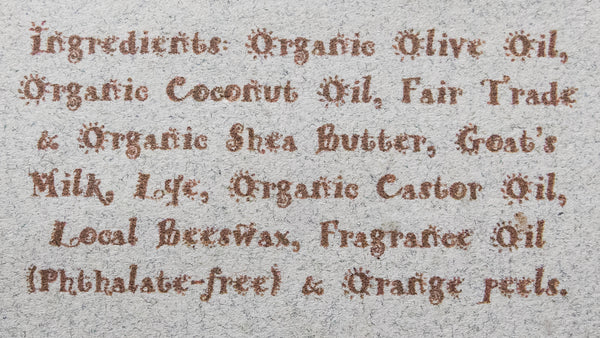 Ingredients: Organic Olive Oil,
Organic Coconut Oil, Fair Trade
& Organic Shea Butter, Goat's
Milk, Lye, Organic Castor Oil,
Local Beeswax, Fragrance Oil
(Phthalate-free) & Orange peels.